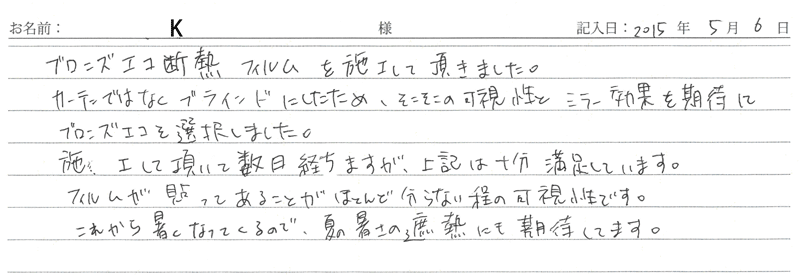 お名前： K 様 記入日：2015年 5月 6日
ブロンズエコ断熱 フィルム を施工して頂きました。
カーテンではなくブラインドにしたため、そこそこの可視性と ミラー効果を期待に
ブロンズエコを選択しました。
施工して頂いて数日経ちますが、上記は十分 満足しています。
フィルムが 貼ってあることがほとんど分らない程の可視性です。
これから暑くなってくるので、夏の暑さの遮熱にも期待してます。